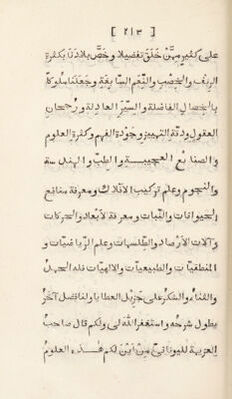 [ ٢١٣ ]
على كثير ممّن خلق تفضيلا وخصّ بلادنا بكثرة
الريف والخصب والنّعم السّابغة وجعلنا ملوكا
بالخصال الفاضلة والسّير العادلة ورجحان
العقول ودقّة التمييز وجودة الفهم وكثرة العلوم
والصنائع العجيبة والطبّ والهندسة
والنجوم وعلم تركيب الافلاك ومعرفة منافع
الحيوانات والنّبات ومعرفة الابعاد والحركات
وآلات الارصاد والطلسمات وعلم الرّياضيّات و
المنطقيات والطبيعيّات والالهيّات فله الحمد
والثناء والشكر على جزيل العطايا ولنا فضل آخر
يطول شرحه واستغفر الله لى ولكم قال صاحب
العزيمة لليونانىّ من اين لكم هذه العلوم